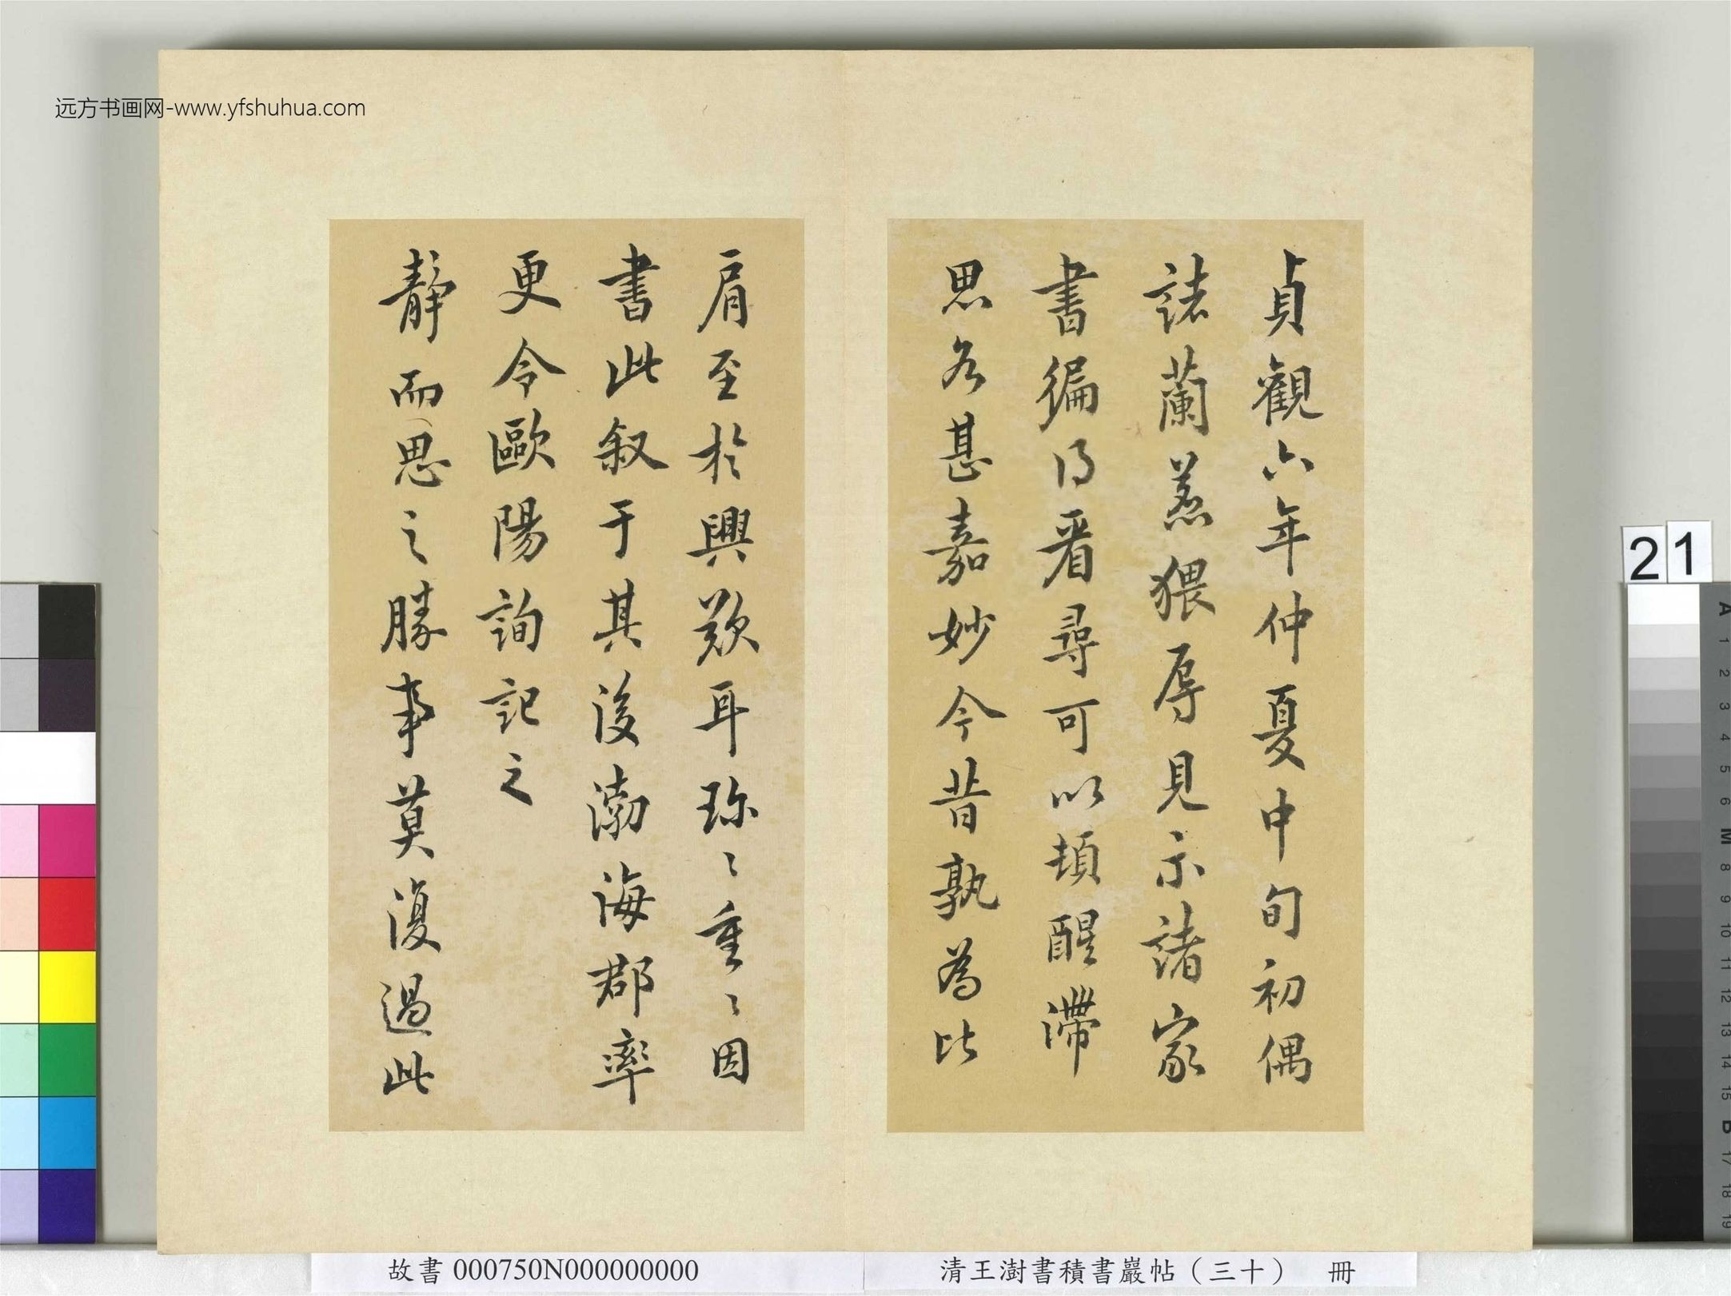 远方书画网-www.yfshuhua.com
貞觀六年仲夏中旬初偶
諸蘭羔猥辱見示諸家
書徧得看尋可以頓醒滯
思各甚嘉妙今昔孰為比
肩至於興歎耳珎〻重〻因
書此叙于其後渤海郡率
更令歐陽詢記之
靜而思之勝事莫復過此
21
故書 000750N000000000
清王澍書積書巖帖（三十） 冊